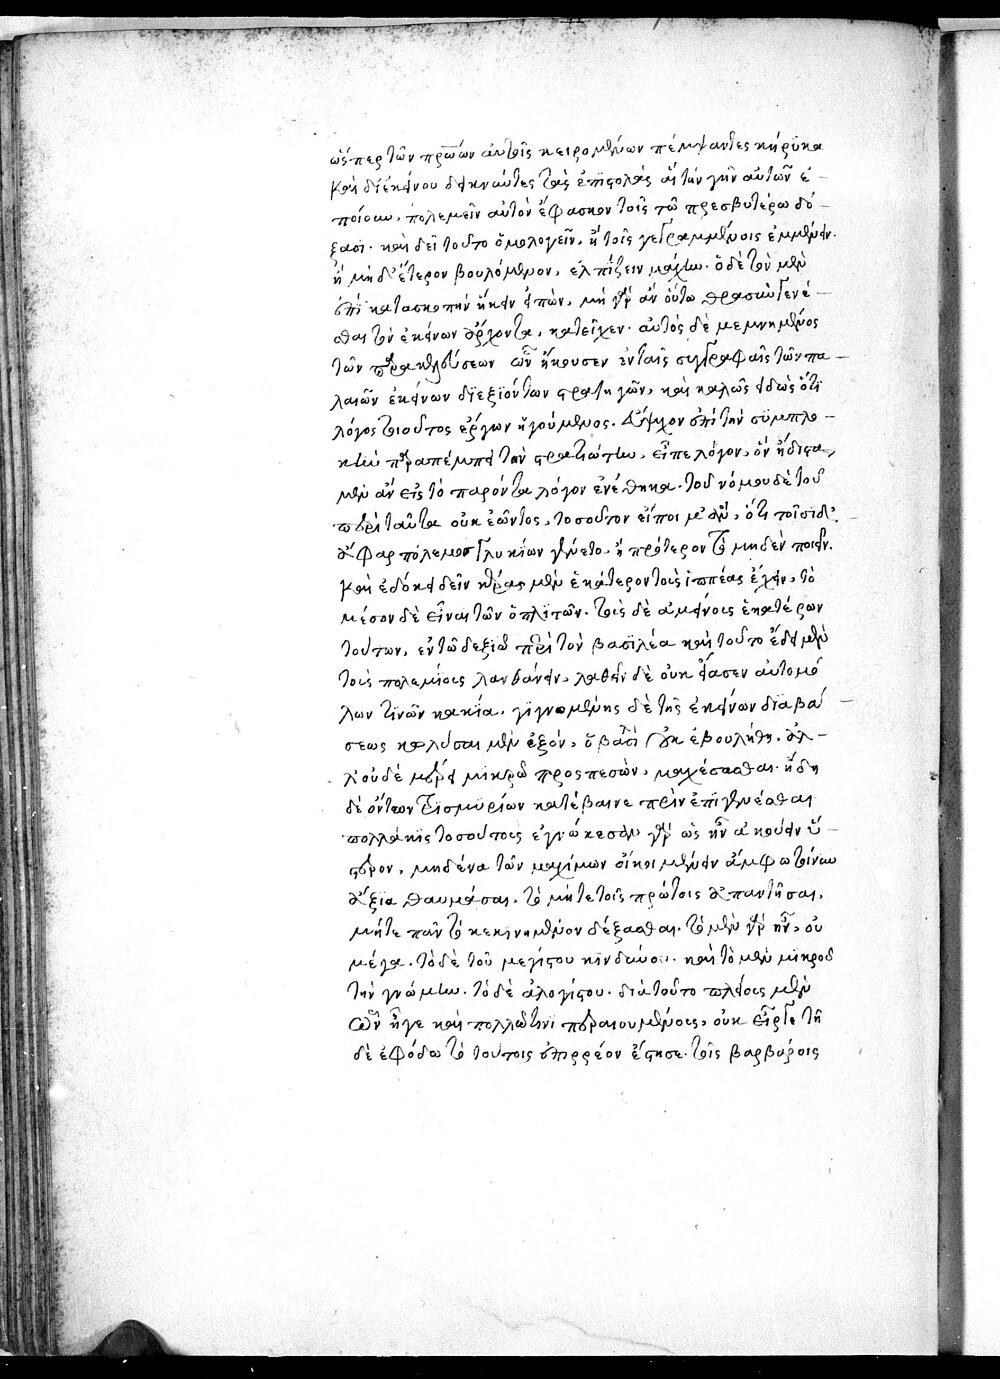 ὥσπερ τῶν πρώων αὐτοῖς κειρομένων πέμψαντες κήρυκα
καὶ δι' ἐκείνου δεικνύντες τὰς ἐπιστολὰς αἳ τὴν γῆν αὐτῶν ἐ-
ποίουν, πολεμεῖν αὐτὸν ἔφασκον τοῖς τῷ πρεσβυτέρῳ δό-
ξασι. καὶ δεῖ τοῦτο ὁμολογεῖν, ἢ τοῖς γεγραμμένοις ἐμμένειν.
ἢ μηδ' ἕτερον βουλόμενον, ἐλπίζειν μάχην. ὁ δὲ τὸν μὲν
ἐπὶ κατασκοπὴν ἥκειν εἰπὼν, μὴ γὰρ ἂν οὕτω θρασὺν γενέ-
σθαι τὸν ἐκείνων ἄρχοντα, κατεῖχεν. αὐτὸς δὲ μεμνημένος
τῶν παρακελεύσεων ὧν ἤκουσεν ἐν ταῖς συγγραφαῖς τῶν πα-
λαιῶν ἐκείνων διεξιόντων στρατηγῶν, καὶ καλῶς εἰδὼς ὅτι
λόγος τοιοῦτος ἔργων ἡγούμενος. εὔψυχον ἐπὶ τὴν συμπλο-
κὴν παραπέμπει τὴν στρατιώτην, εἶπε λόγον, ὃν ἥδιστα,
μὲν ἂν εἰς τὸ παρόντα λόγον ἐνέθηκα. τοῦ νόμου δὲ τοῦ
περὶ ταῦτα οὐκ ἐῶντος, τοσοῦτον εἴποιμ' ἂν, ὅτι τοῖσιδ'
ἄφαρ πόλεμος γλυκίων γένετο, ἢ πρότερον τὸ μηδὲν ποιεῖν.
καὶ ἐδόκει δεῖν κέρας μὲν ἑκάτερον τοὺς ἱππέας ἔχειν, τὸ
μέσον δὲ εἶναι τῶν ὁπλιτῶν. τοῖς δὲ ἀμείνοις ἑκατέρων
τούτων, ἐν τῷ δεξιῷ περὶ τὸν βασιλέα καὶ τοῦτο ἔδει μὲν
τοὺς πολεμίους λανθάνειν, λαθεῖν δὲ οὐκ εἴασεν αὐτομό
λων τινῶν κακία. γιγνομένης δὲ τῆς ἐκείνων διαβά-
σεως κωλῦσαι μὲν ἐξὸν, ὁ βασιλεὺς οὐκ ἐβουλήθη. ἀλ-
λ' οὐδὲ μέρει μικρῷ προσπεσὼν, μαχέσασθαι. ἤδη
δὲ ὄντων τρισμυρίων κατέβαινε πρὶν ἐπιγενέσθαι
πολλάκις τοσούτοις ἐγνώκεσαν γὰρ ὡς ἦν ἀκούειν ὕ-
στερον, μηδένα τῶν μαχίμων οἴκοι μένειν ἄμφω τοίνυν
ἄξια θαυμάσαι. τὸ μήτε τοῖς πρώτοις ἀπαντῆσαι,
μήτε πᾶν τὸ κεκινημένον δέξασθαι. τὸ μὲν γὰρ ἦν, οὐ
μέγα. τὸ δὲ τοῦ μεγίστου κινδύνου. καὶ τὸ μὲν μικροῦ
τὴν γνώμην. τὸ δὲ ἀλογίστου. διὰ τοῦτο πλείοις μὲν
ὧν ἦγε καὶ πολλῷ τινι περαιουμένοις, οὐκ εἶρξε τῇ
δὲ ἐφόδῳ τὸ τούτοις ἐπιρρέον ἔστησε. τοῖς βαρβάροις